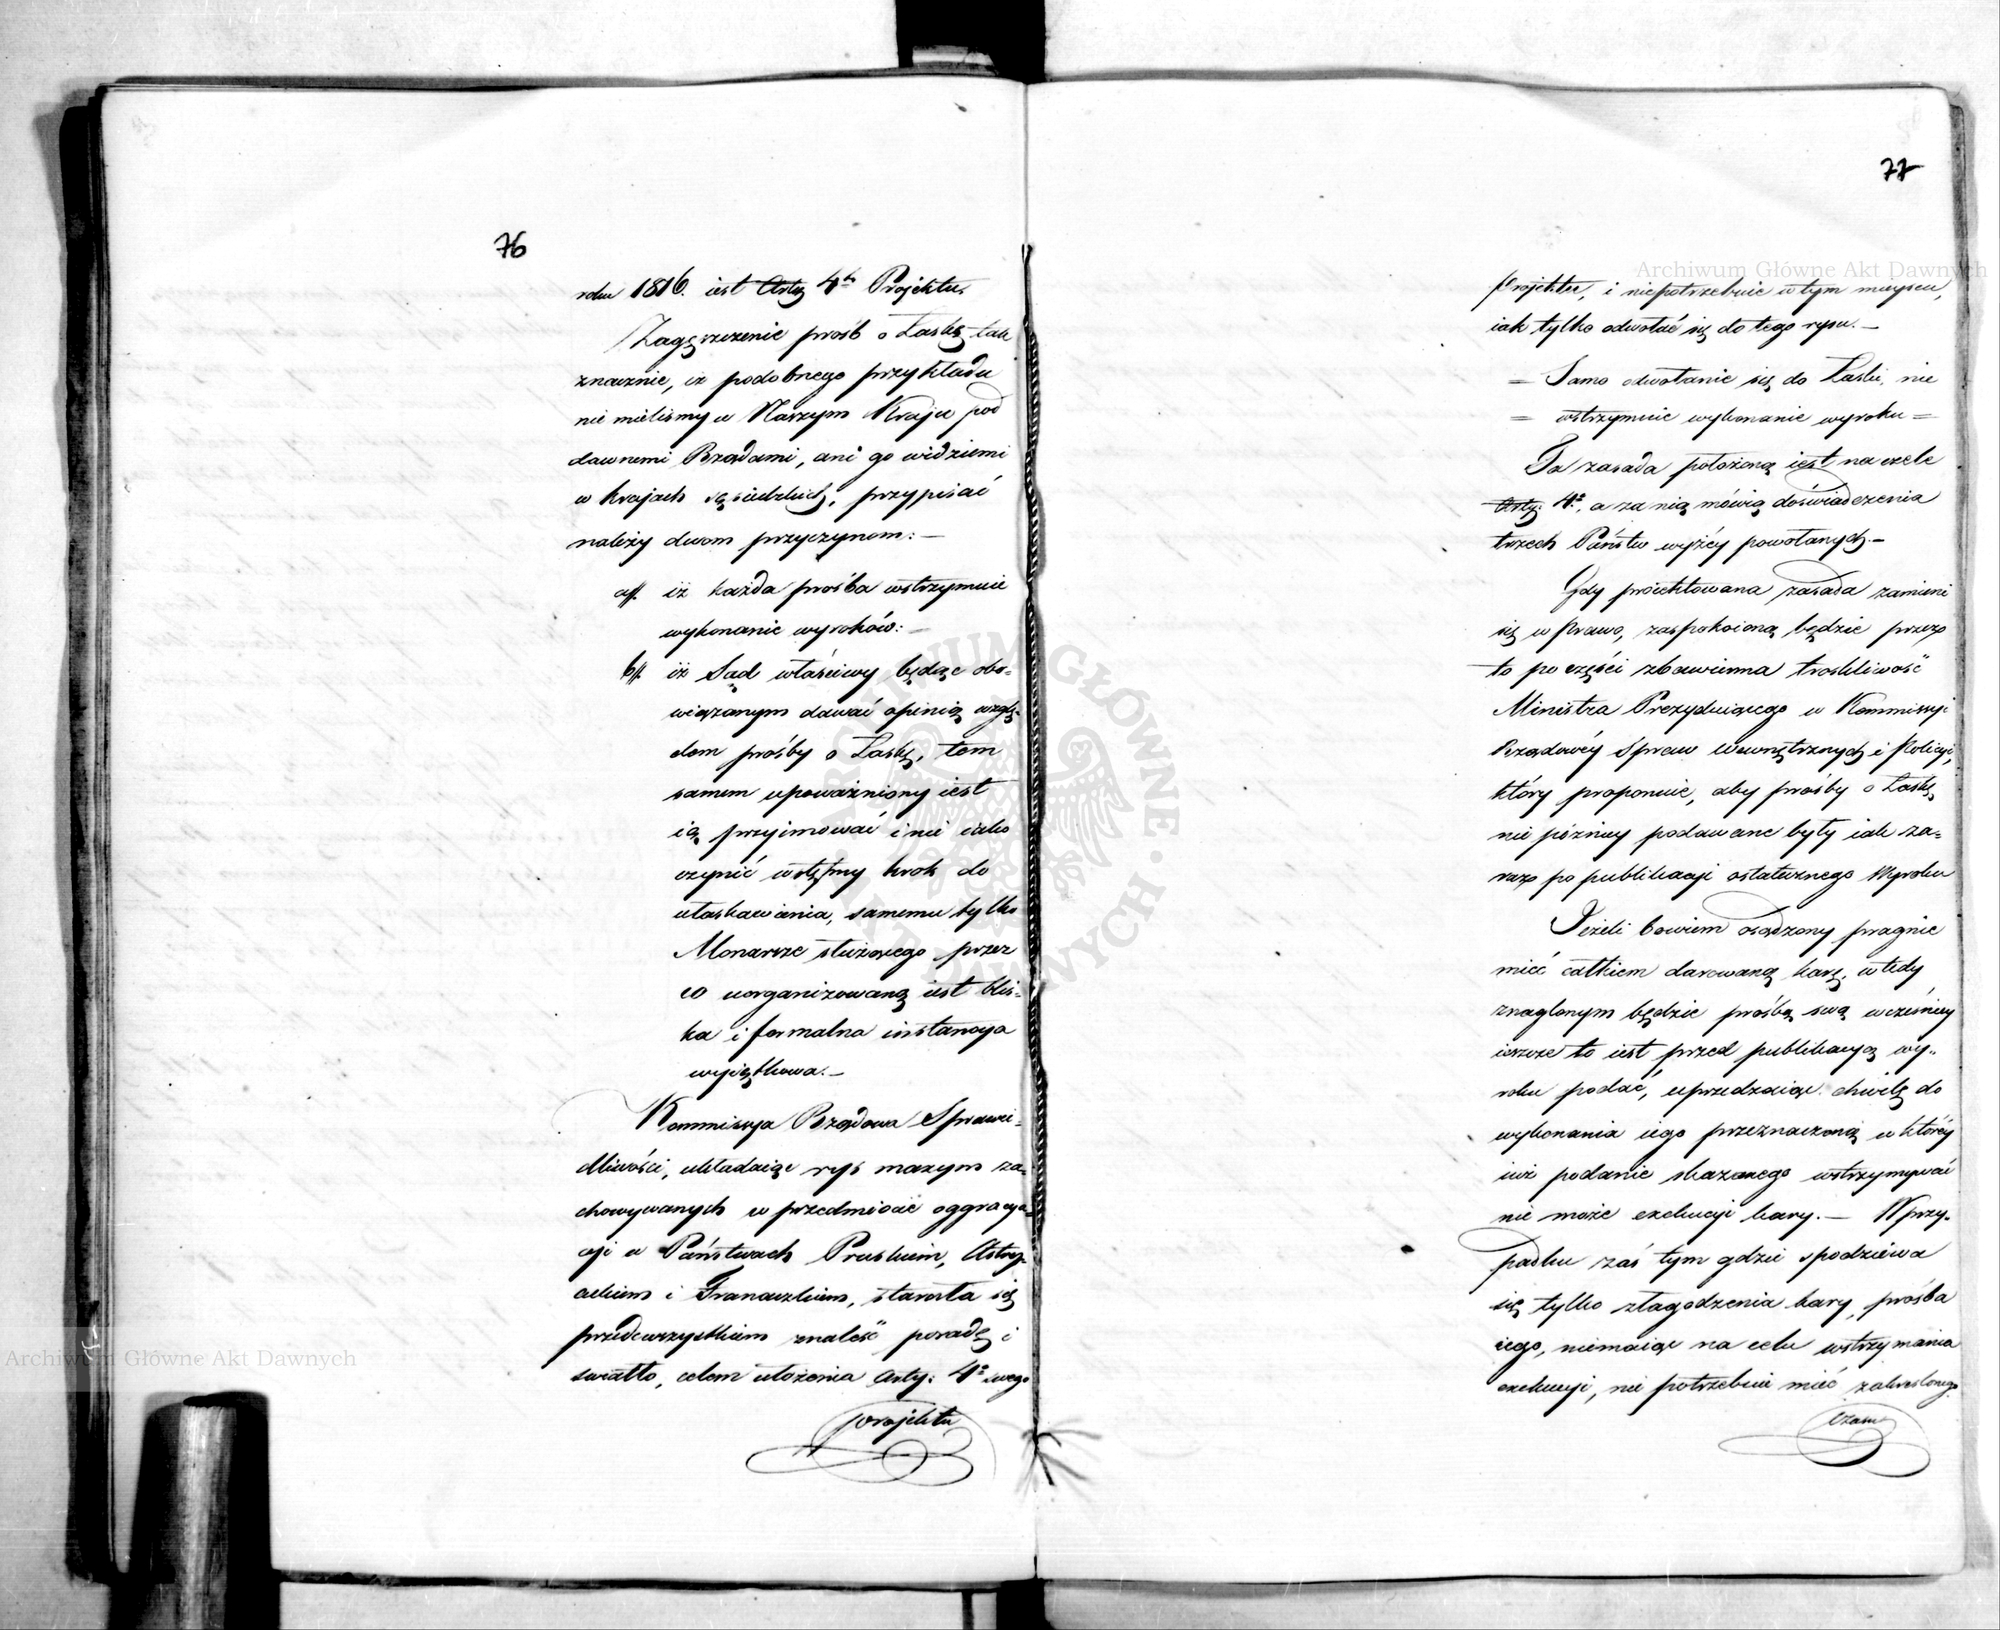 76
roku 1816. iest Arty 4ty Projektu.
Zagęszczenie prośb o Łaskę tak
znacznie, iż podobnego przykładu
nie mieliśmy w Naszym Kraju pod
dawnemi Rządami, ani go widziemi
w krajach sąsiedzkich, przypisać
należy dwom przyczynom: —
a//. iż każda prośba wstrzymuie
wykonanie wyroków: —
b//. iż Sąd właściwy będąc obo-
wiązanym dawać opinią wzglę-
dem prośby o Łaskę, tem
samem upoważniony iest
ią przyimować i nie iako
czynić wstępny krok do
ułaskawienia, samemu tylko
Monarsze służącego przez
co uorganizowaną iest blis-
ka i formalna instancya
wyjątkowa. —
Kommissya Rządowa Sprawie-
dliwości, układaiąc rys maxym za-
chowywanych w przedmiocie aggracya-
cyi w Państwach Pruskiem, Austry-
ackiem i Francuzkiem, starała się
przedewszystkiem znaleść poradę i
światło, celem ułożenia Arty: 4o swego
projektu
77
Projektu, i niepotrzebuie w tym mieyscu,
iak tylko odwołać się do tego rysu. —
= Samo odwołanie się do Łaski, nie
= wstrzymuie wykonanie wyroku =
Ta zasada położoną iest na czele
Arty: 4o, a za nią mówią doświadczenia
trzech Państw wyżéy powołanych. —
Gdy proiektowana zasada zamieni
się w Prawo, zaspokoioną będzie przez
to po części zbawienna troskliwość
Ministra Prezyduiącego w Kommissyi
Rządowéy Spraw Wewnętrznych i Policyi,
który proponuie, aby prośby o Łaskę,
nie późniey podawane były iak za-
raz po publikacyi ostatecznego Wyroku
Jeżeli bowiem osądzony pragnie
mieć całkiem darowaną karę, wtedy
znaglonym będzie prośbę swą wcześniey
ieszcze to iest przed publikacyą wy-
roku podać, uprzedzaiąc chwilę do
wykonania iego przeznaczoną w któréy
iuż podanie skazanego wstrzymywać
nie może exekucyi kary. — W przy-
padku zaś tym gdzie spodziewa
się tylko złagodzenia kary, prośba
iego, niemaiąc na celu wstrzymania
exekucyi, nie potrzebuie mieć zakreślonego
czasu
Archiwum Główne Akt Dawnych
Archiwum Główne Akt Dawnych
ARCHIWUM GŁÓWNE AKT DAWNYCH